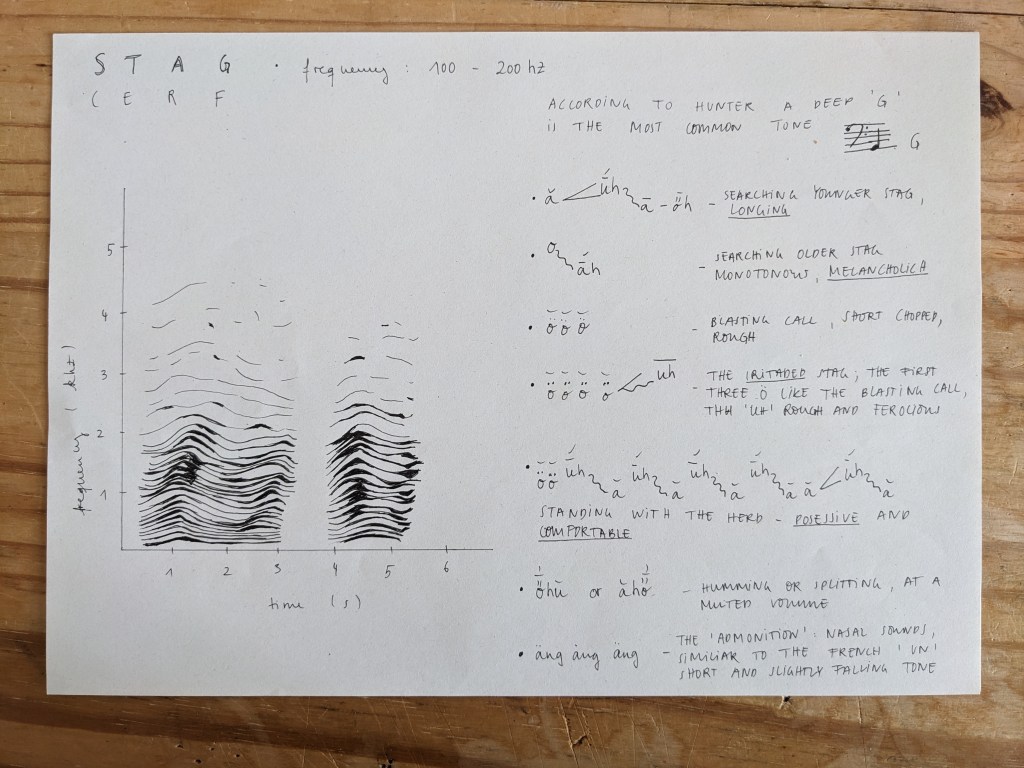 STAG · frequency : 100 - 200 hz
CERF
ACCORDING TO HUNTER A DEEP 'G'
iS THE MOST COMMON TONE
G
• ă ūh ā - ȫh - SEARCHING YOUNGER STAG,
LONGING
• o āh - SEARCHING OLDER STAG
MONOTONOUS, MELANCHOLICH
• ö̆ ö̆ ö̆ - BLASTING CALL, SHORT CHOPPED,
ROUGH
• ö̆ ö̆ ö̆ ö̆ ūh - THE IRITADED STAG; THE FIRST
THREE Ö LIKE THE BLASTING CALL,
THH 'UH' ROUGH AND FEROCIOUS
• ö̆ ö̆ ūh ă ūh ă ūh ă ūh ă ă ūh ă
STANDING WITH THE HERD - POSESSIVE AND
COMFORTABLE
• ö̆hŭ or ăhö̆ - HUMMING OR SPLITTING, AT A
MUTED VOLUME
• äng äng äng - THE 'ADMONITION': NASAL SOUNDS,
SIMILIAR TO THE FRENCH 'UN'
SHORT AND SLIGHTLY FALLING TONE
frequency (khz)
5
4
3
2
1
1 2 3 4 5 6
time (s)